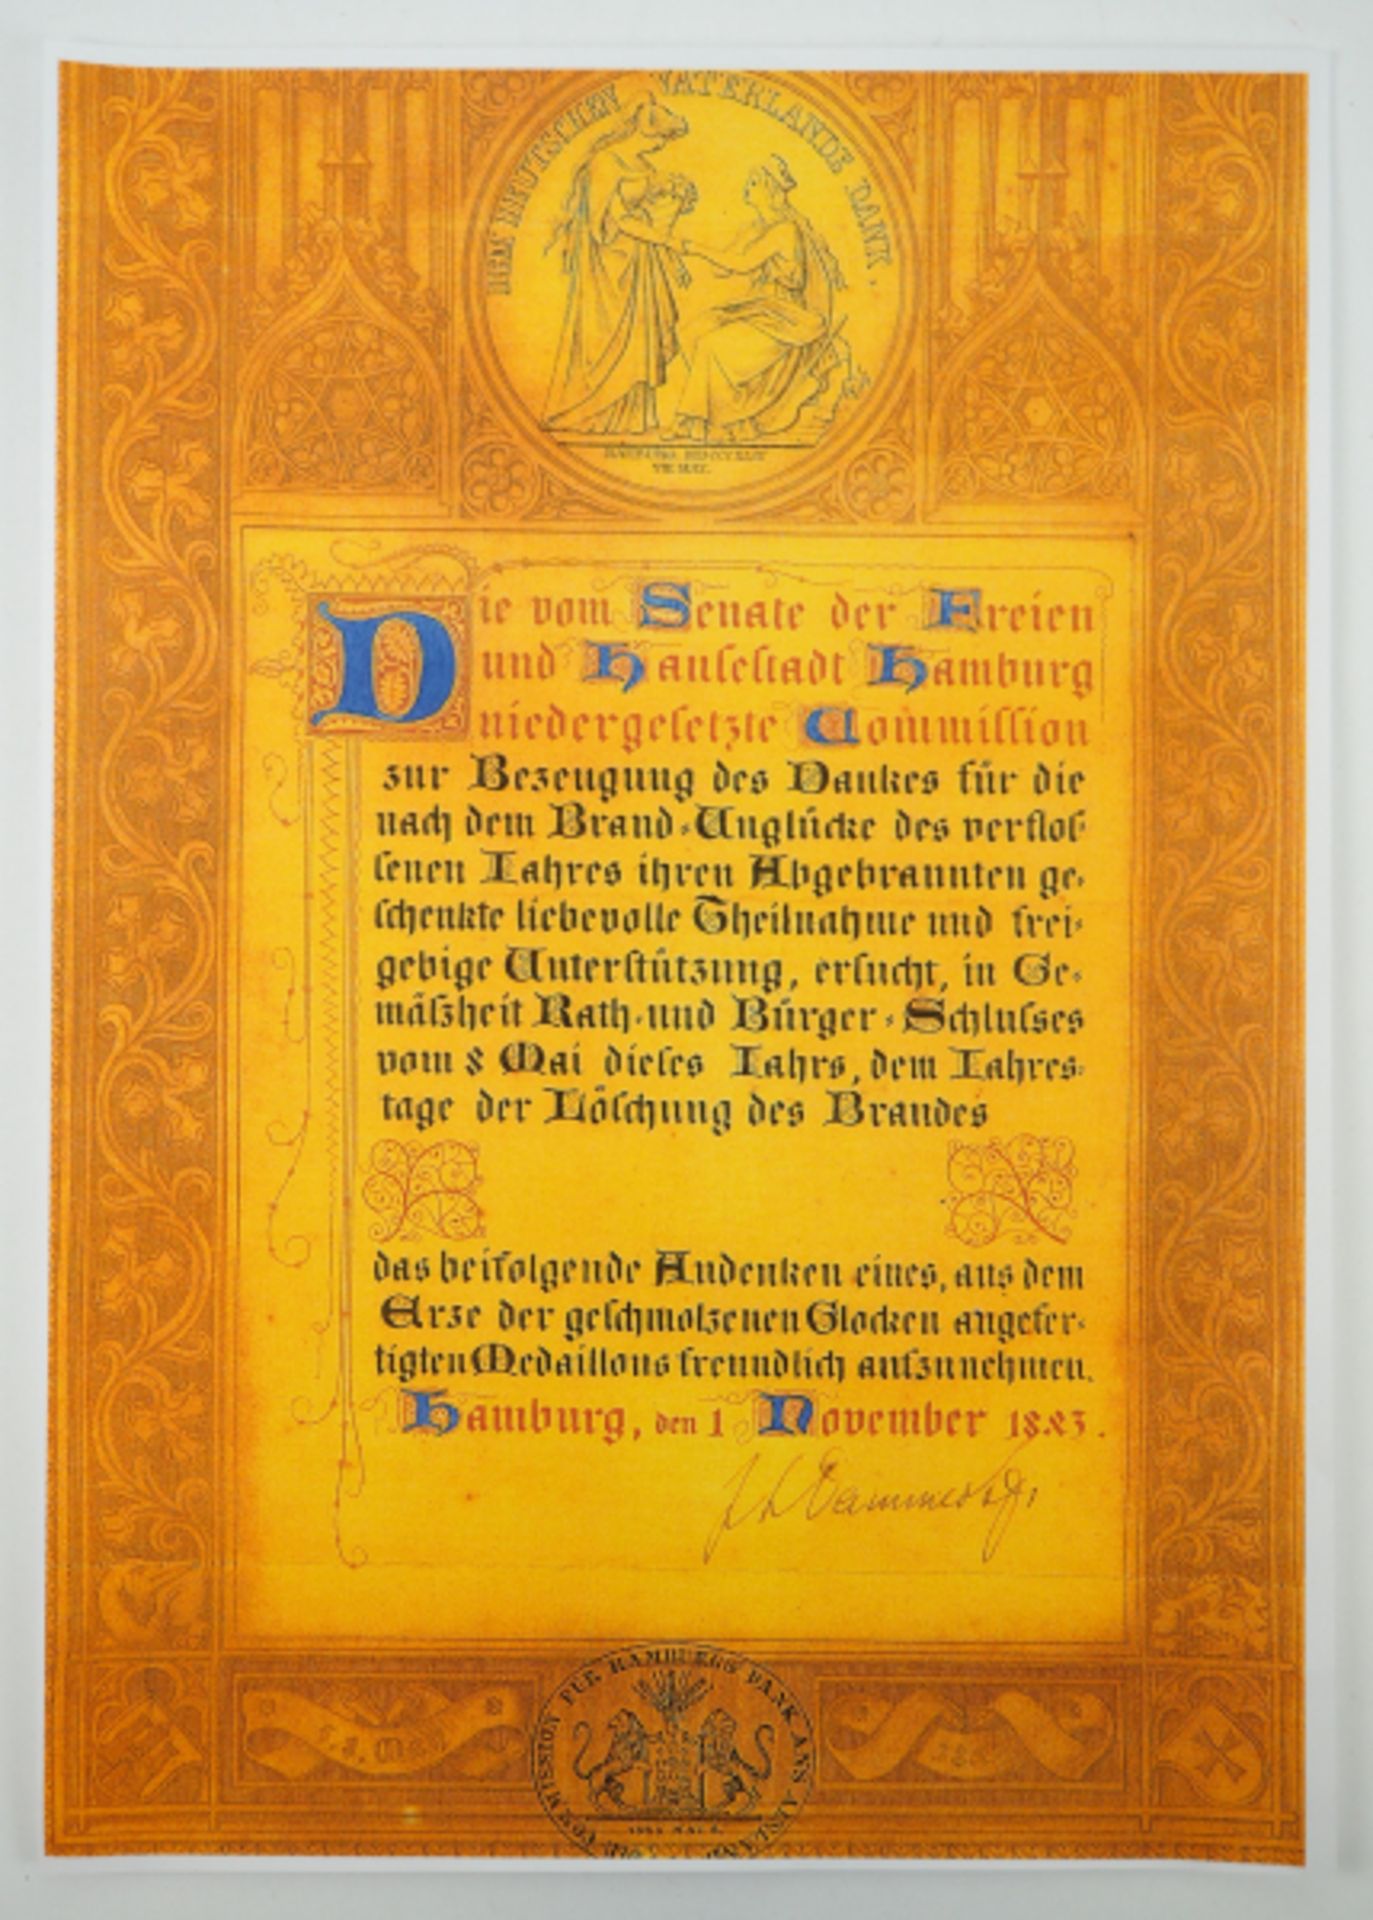 DEM DEUTSCHEN VATERLANDE DANK.
VII MAY.
Die vom Senate der Freien
und Hanseſtadt Hamburg
niedergeſetzte Commiſſion
zur Bezeugung des Dankes für die
nach dem Brand-Unglücke des verfloſ-
ſenen Iahres ihren Abgebrannten ge-
ſchenkte liebevolle Theilnahme und frei-
gebige Unterſtützung, erſucht, in Ge-
mäſzheit Rath-und Bürger-Schluſses
vom 8 Mai dieſes Iahrs, dem Iahres-
tage der Löſchung des Brandes
das beifolgende Andenken eines, aus dem
Erze der geſchmolzenen Glocken angefer-
tigten Medaillons freundlich aufzunehmen.
Hamburg, den 1 November 1843.
COMMISSION FÜR HAMBURGS DANK ANS